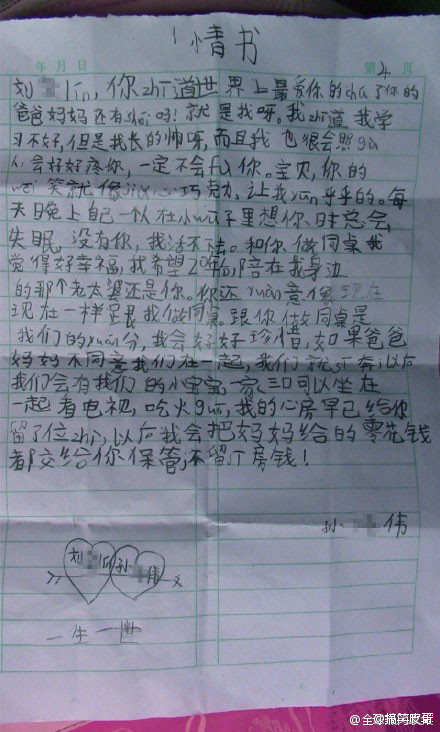 情书
年 月 日
第4页
刘 lin，你zhī道世界上最爱你的chú了你的
爸爸妈妈还有shéi吗！就是我呀。我zhī道 我学
习不好，但是我长的帅呀，而且我也很会照gù
会好好疼你，一定不会fù你。宝贝，你的
wēi笑就像 心巧克力，让我 乎乎的。每
天晚上自己一人在小 子里想你，时总会
失眠，没有你，我活不 。和你做同桌我
觉得好幸福，我希望20年 陪在我身边
的那个老太婆还是你。你还yuàn意像现在
现在一样是跟我做同桌。跟你做同桌是
我们的yuán分，我会好好珍惜，如果爸爸
妈妈不同意我们在一起，我们就 奔，以后
我们会有我们的小宝宝，一家三口可以坐在
一起看电视，吃火guō，我的心房早已给你
留了位zhì，以后我会把妈妈给的零花钱
都交给你保管，还留 房钱！
孙 伟
刘 欣 孙 伟
一生一世
@全球搞笑皮哥